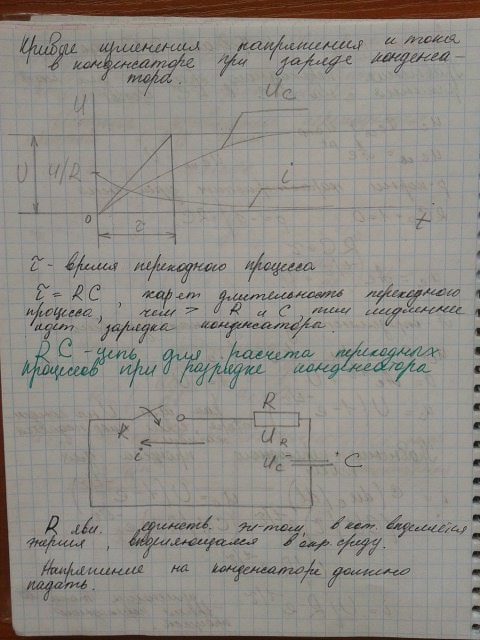 Кривые изменения напряжения и тока
в конденсаторе при заряде конденса-
тора.
U
Uc
U
U/R
i
0
τ
t
τ - время переходного процесса
τ = RC, длительность переходного
процесса, чем > R и C, тем медленнее
идет зарядка конденсатора.
RC - цепь для расчета переходных
процессов при разрядке конденсатора
R
K
UR
i
Uc
C
R явл. единств. эл-том, в кот. выделяется
энергия, выделяющаяся в окр. среду.
Напряжение на конденсаторе должно
падать.